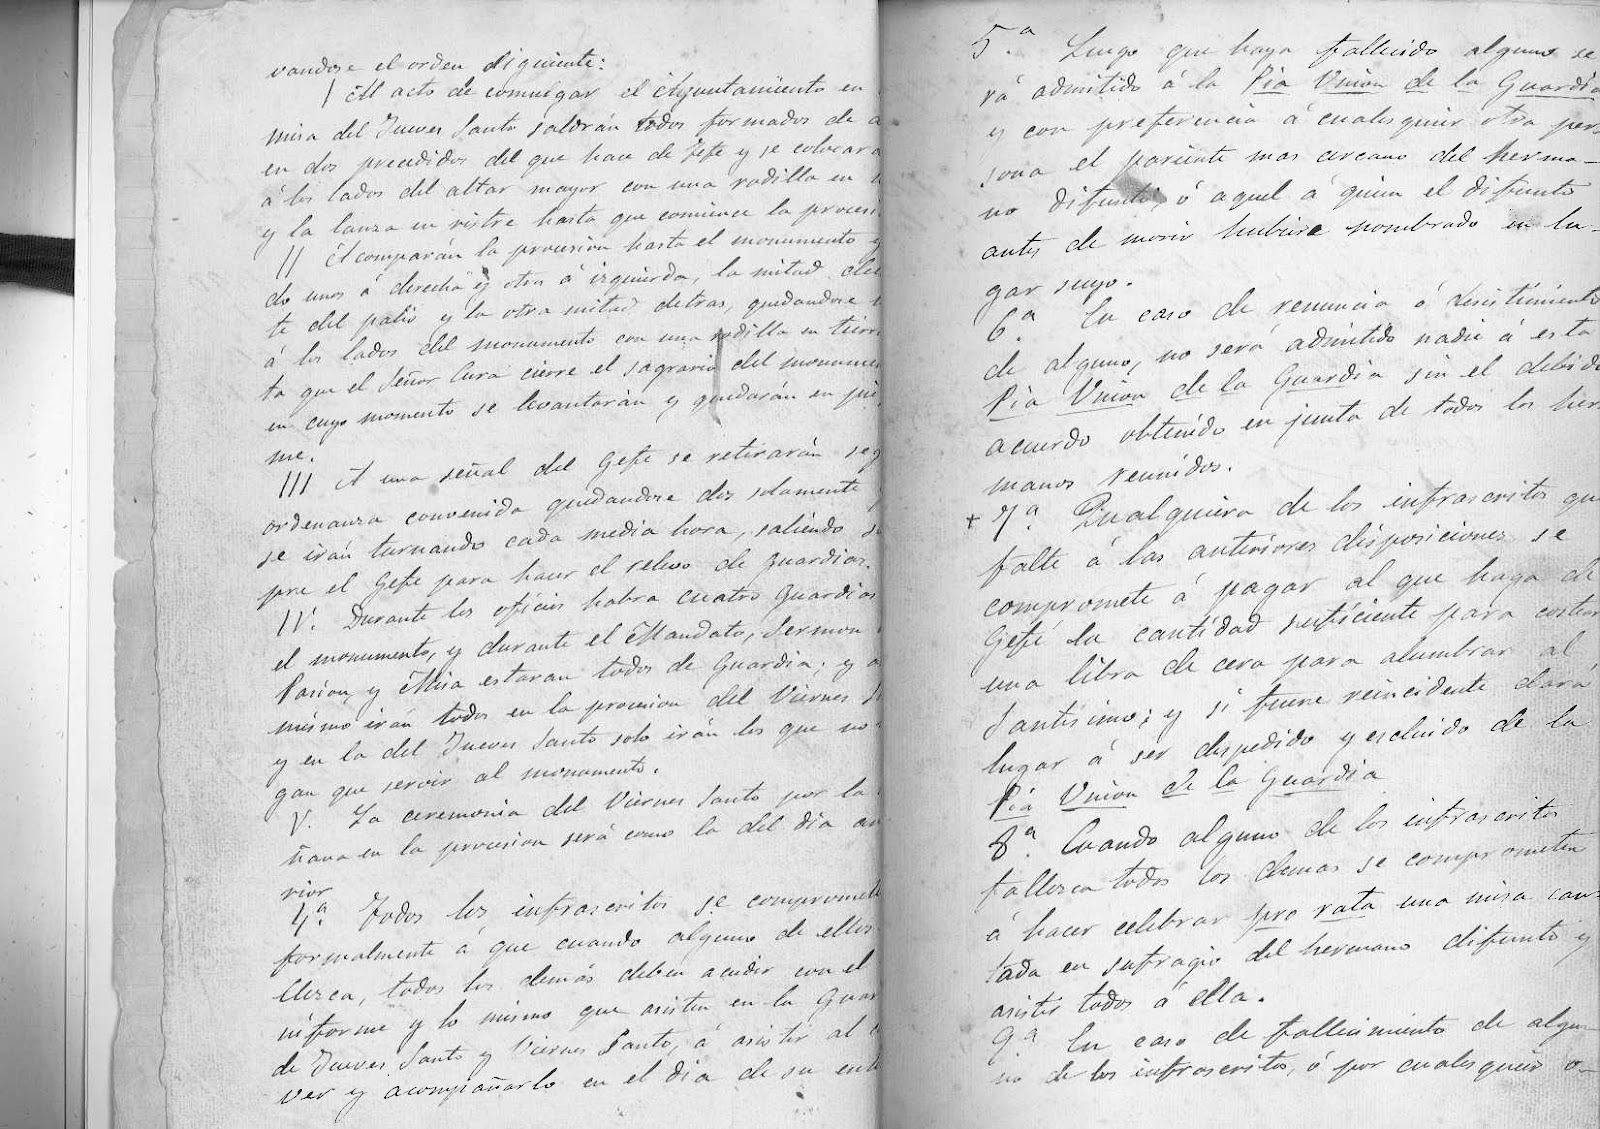 vandose el orden siguiente:
I Al acto de comulgar el Ayuntamiento en
misa del Jueves Santo saldrán todos formados de a
en dos precedidos del que hace de Jefe y se colocar
á los lados del altar mayor con una rodilla en
y la lanza en ristre hasta que comience la procesi
II Acomparán la procesion hasta el monumento y
do unos á derecha y otros á izquierda, la mitad dela
te del palio y la otra mitad detras, quedandose
á los lados del monumento con una rodilla en tierr
ta que el Señor Cura cierre el sagrario del monume
en cuyo momento se levantarán y quedarán en pie
me.
III A una señal del Gefe se retirarán seg
ordenanza convenida quedandose dos solamente
se irán turnando cada media hora, saliendo
pre el Gefe para hacer el relevo de guardias.
IV. Durante los oficios habra cuatro Guardias
el monumento, y durante el Mandato, Sermon
Pasion, y Misa estaran todos de Guardia; y a
mismo irán todos en la procesion del Viernes
y en la del Jueves Santo solo irán los que no
gan que servir al monumento.
V. La ceremonia del Viernes Santo por la
ñana en la procesion será como la del dia an
rior
4.ª Todos los infrascritos se compromet
formalmente á que cuando alguno de ellos
llezca, todos los demás deben acudir con el
niforme y lo mismo que asisten en la Guar
de Jueves Santo y Viernes Santo, á asistir al
ver y acompañarlo en el dia de su ent
5.ª Luego que haya fallecido alguno se
rá admitido á la Pia Union de la Guardia
y con preferencia á cualesquier otra per-
sona el pariente mas cercano del herma-
no difunto, ó aquel á quien el difunto
antes de morir hubiere nombrado en lu-
gar suyo.
6.ª En caso de renuncia ó desistimiento
de alguno, no será admitido nadie á esta
Pia Union de la Guardia sin el debido
acuerdo obtenido en junta de todos los her
manos reunidos.
+ 7ª. Cualquiera de los infrascritos que
falte á las anteriores disposiciones se
compromete á pagar al que haga de
Gefe la cantidad suficiente para costear
una libra de cera para alumbrar al
Santísimo; y si fuere reincidente dará
lugar á ser despedido y escluido de la
Pia Union de la Guardia
8.ª Cuando alguno de los infrascritos
fallezca todos los demas se comprometen
á hacer celebrar pro rata una misa can-
tada en sufragio del hermano difunto y
asistir todos á ella.
9.ª En caso de fallecimiento de algu-
no de los infrascritos, ó por cualesquier o-